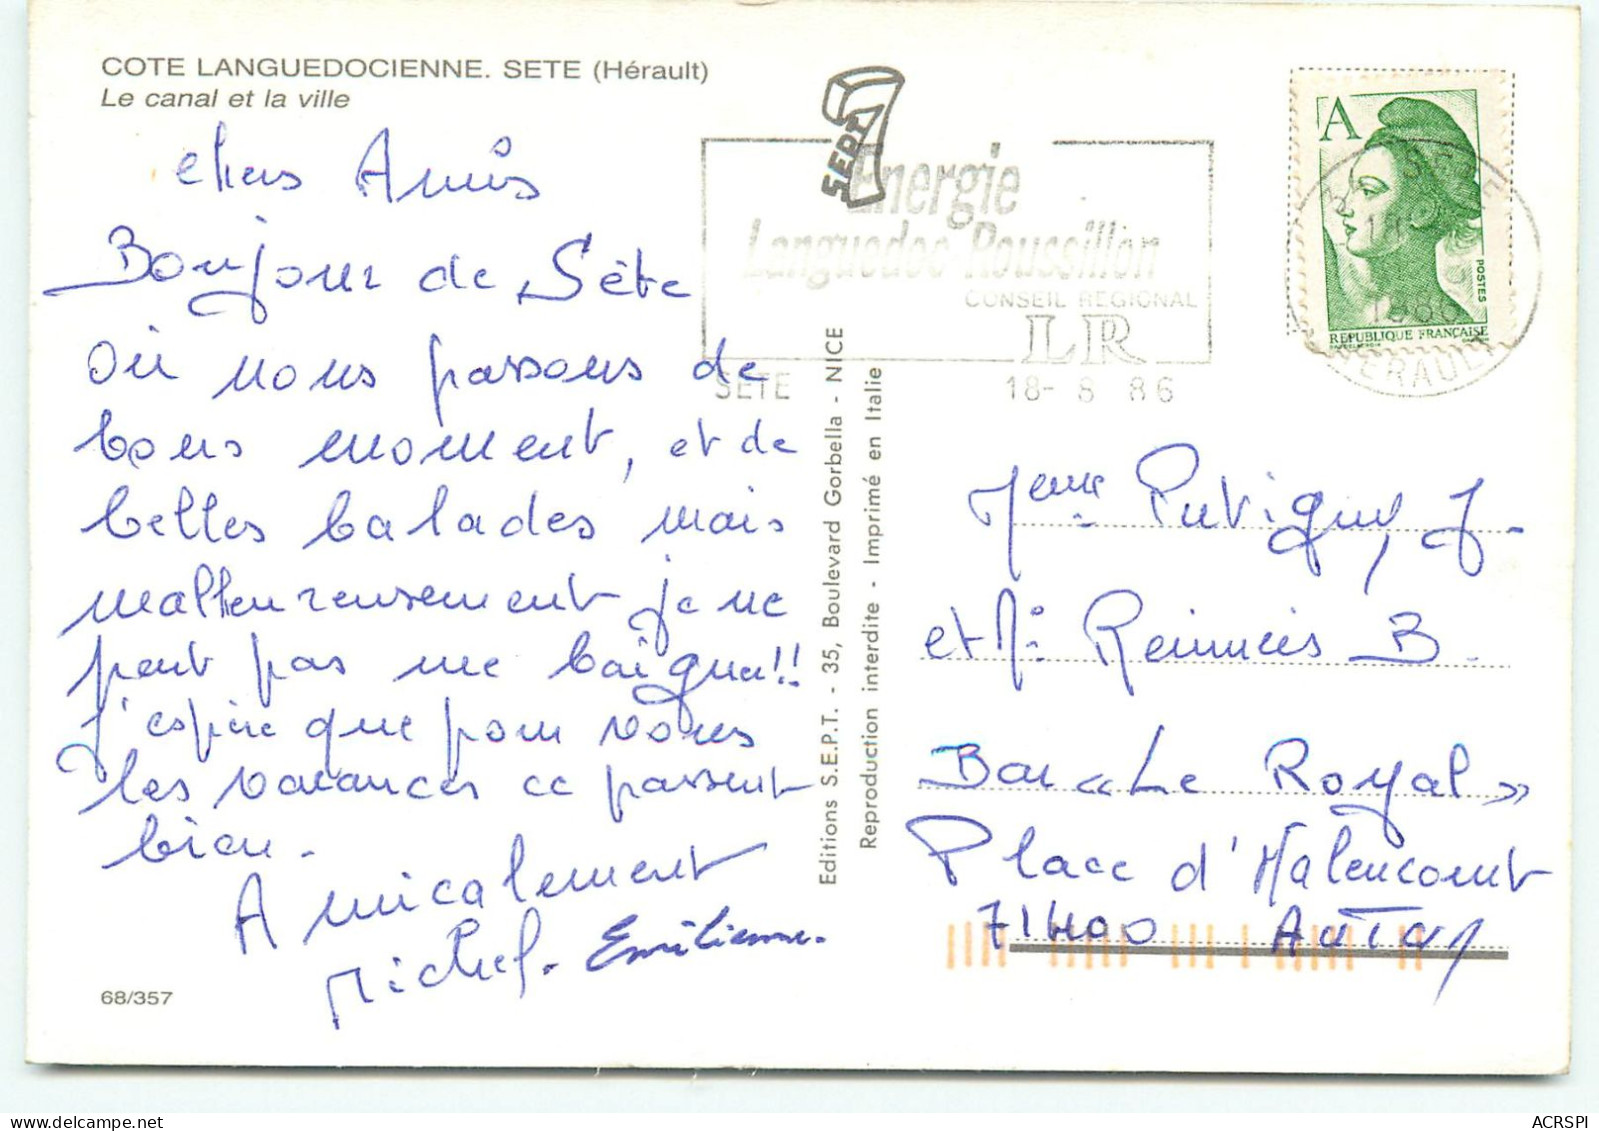 COTE LANGUEDOCIENNE. SETE (Hérault)
Le canal et la ville
chers Amis
Bonjour de Sète
où nous passons de
bons moment, et de
belles balades mais
malheureusement je ne
peut pas me baigner!!
J'espère que pour vous
les vacances ce passent
bien.
Amicalement
Michel. Emilienne.
68/357
Editions S.E.P.T. - 35, Boulevard Gorbella - NICE
Reproduction interdite - Imprimé en Italie
SEPT
Energie
Languedoc Roussillon
CONSEIL REGIONAL
LR
SETE 18- 8 86
A
POSTES
REPUBLIQUE FRANÇAISE
SETE
1986
HERAULT
Putigny, J.
et Mr
B.
Bar « Le Royal »
Place d'
71400 Autun
ACRSPI